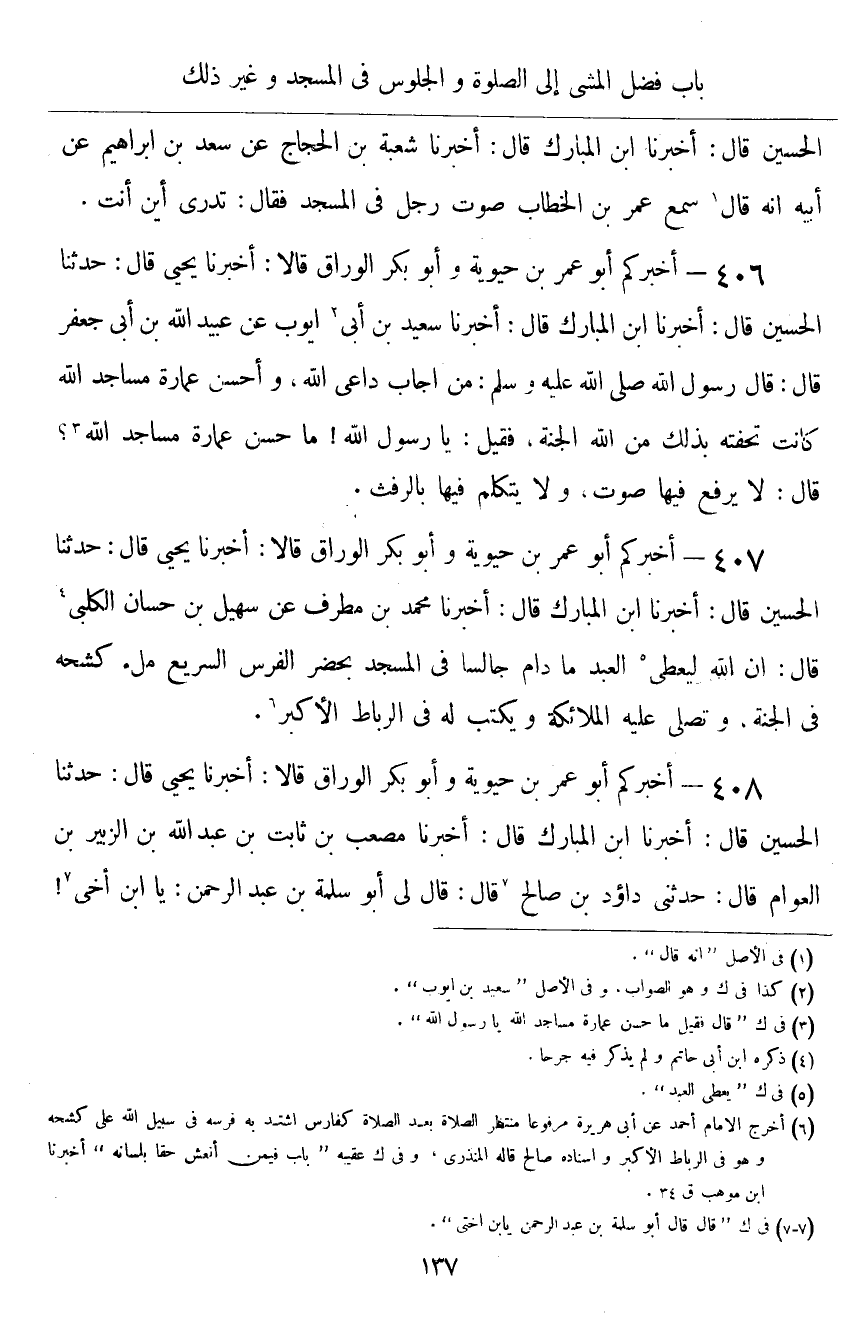 باب فضل المشى إلى الصلوة و الجلوس فى المسجد و غير ذلك
الحسين قال : أخبرنا ابن المبارك قال : أخبرنا شعبة بن الحجاج عن سعد بن ابراهيم عن
أبيه انه قال١ سمع عمر بن الخطاب صوت رجل فى المسجد فقال : تدرى أين أنت .
٤٠٦ – أخبركم أبو عمر بن حيوية و أبو بكر الوراق قالا : أخبرنا يحيى قال : حدثنا
الحسين قال : أخبرنا ابن المبارك قال : أخبرنا سعيد بن أبى٢ ايوب عن عبيد الله بن أبى جعفر
قال : قال رسول الله صلى الله عليه و سلم : من اجاب داعى الله ، و أحسن عمارة مساجد الله
كانت تحفته بذلك من الله الجنة ، فقيل : يا رسول الله ! ما حسن عمارة مساجد الله٣ ؟
قال : لا يرفع فيها صوت ، و لا يتكلم فيها بالرفث .
٤٠٧ – أخبركم أبو عمر بن حيوية و أبو بكر الوراق قالا : أخبرنا يحيى قال : حدثنا
الحسين قال : أخبرنا ابن المبارك قال : أخبرنا محمد بن مطرف عن سهيل بن حسان الكلبى٤
قال : ان الله ليعطى٥ العبد ما دام جالسا فى المسجد بحضر الفرس السريع ملء كشحه
فى الجنة ، و تصلى عليه الملائكة و يكتب له فى الرباط الأكبر٦ .
٤٠٨ – أخبركم أبو عمر بن حيوية و أبو بكر الوراق قالا : أخبرنا يحيى قال : حدثنا
الحسين قال : أخبرنا ابن المبارك قال : أخبرنا مصعب بن ثابت بن عبد الله بن الزبير بن
العوام قال : حدثنى داؤد بن صالح ٧قال : قال لى أبو سلمة بن عبد الرحمن : يا ابن أخى٧ !
(١) فى الأصل ”انه قال“ .
(٢) كذا فى ك و هو الصواب ، و فى الأصل ”سعيد بن ايوب“ .
(٣) فى ك ”قال فقيل ما حسن عمارة مساجد الله يا رسول الله“ .
(٤) ذكره ابن أبى حاتم و لم يذكر فيه جرحا .
(٥) فى ك ”يعطى العبد“ .
(٦) أخرج الامام أحمد عن أبى هريرة مرفوعا منتظر الصلاة بعد الصلاة كفارس اشتد به فرسه فى سبيل الله على كشحه
و هو فى الرباط الأكبر و اسناده صالح قاله المنذرى ، و فى ك عقيبه ”باب فيمن أنعش حقا بلسانه“ أخبرنا
ابن موهب ق ٣٤ .
(٧-٧) فى ك ”قال قال أبو سلمة بن عبد الرحمن يابن اختى“ .
١٣٧